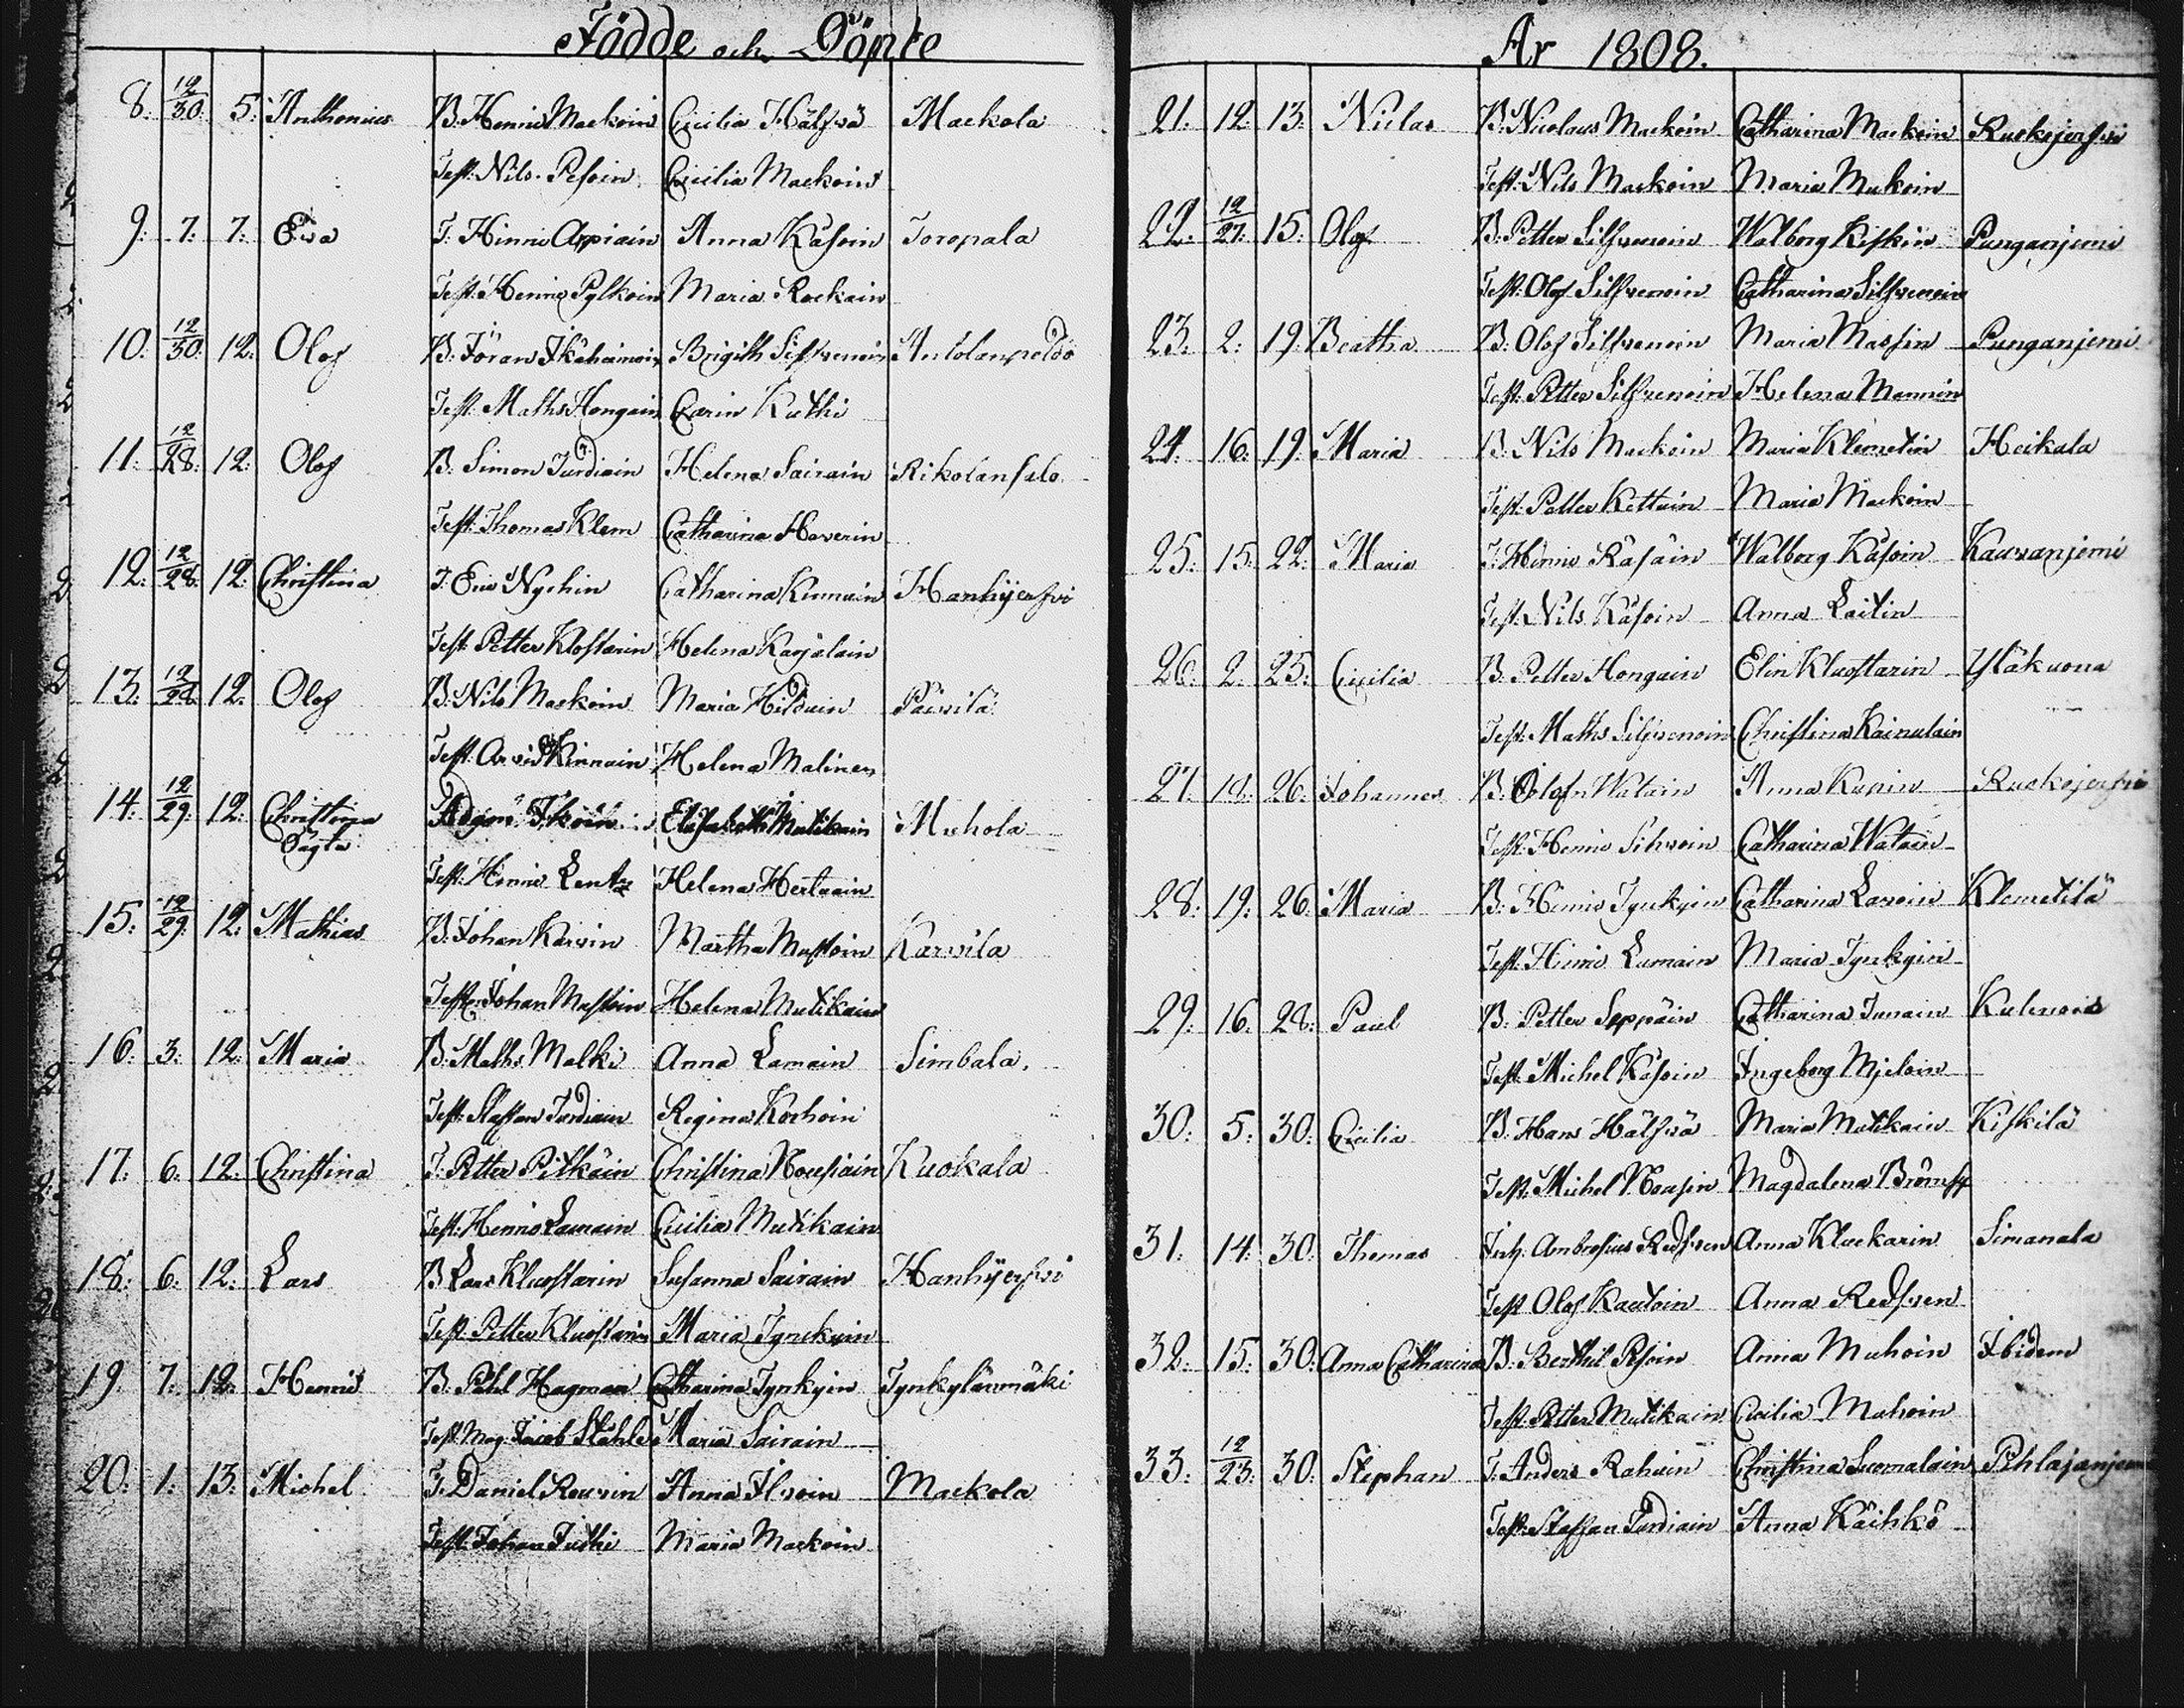 Födde och Döpte
8. 12/30. 5. Anthonius B. Henric Maekoin Cicilia Hälfvä Maekola
Test: Nils Pesoin Cicilia Maekoin
9. 7. 7. Eva T. Hinric Appiain Anna Käsoin Toropala
Test: Henric Pylkoin Maria Rockain
10. 12/30. 12. Olof B. Jöran Ikäheimoin Brigith Silfvenoin
Test: Maths Hongain Carin Kuthi
11. 12/28. 12. Olof B. Simon Turdiain Helena Sairain Rikolansalo
Test: Thomas Klem Catharina Haverin
12. 12/28. 12. Christina T. Eric Nychin Catharina Kinnuin Hanhijerfvi
Test: Petter Klostarin Helena Karjalain
13. 12/28. 12. Olof B. Nils Maekoin Maria Hilduin Päivilä
Test: Arvid Kinnain Helena Malinen
14. 12/29. 12. Christina Elisabeth Mutikain Muhola
Oägta
Test: Henric Lentz Helena Hertuain
15. 12/29. 12. Mathias B. Johan Karvin Martha Mustoin Karvila
Test: Johan Mustoin Helena Mutikain
16. 3. 12. Maria B. Maths Malki Anna Lamain Simbala.
Test: Staffan Turdiain Regina Korhoin
17. 6. 12. Christina T. Petter Pitkäin Christina Nousiain Kuokala
Test: Henric Lamain Cicilia Mutikain
18. 6. 12. Lars B. Lars Kluostarin Susanna Sairain Hanhijerfvi
Test: Petter Kluostarin Maria Tynkyin
19. 7. 12. Henric B. Pehl Hagman Catharina Tynkyin Tynkylänmäki
Test: Mag. Jacob Ståhle Maria Sairain
20. 1. 13. Michel T. Daniel Rouvin Anna Ilvoin Maekola
Test: Johan Tuthi Maria Maekoin
År 1808.
21. 12. 13. Niclas B. Nicolaus Maekoin Catharina Maekoin Ruokojerfvi
Test: Nils Maekoin Maria Mukoin
22. 12/27. 15. Olof B. Petter Silfvenoin Walborg Kiskin Punganjemi
Test: Olof Silfvenoin Catharina Silfvenoin
23. 2. 19. Beatha B. Olof Silfvenoin Maria Massin Punganjemi
Test: Petter Silfvenoin Helena Mannin
24. 16. 19. Maria B. Nils Maekoin Maria Klemetin Heikala
Test: Petter Kettuin Maria Maekoin
25. 15. 22. Maria T. Henric Räsäin Walborg Käsoin Kauvanjemi
Test: Nils Käsoin Anna Laitin
26. 2. 25. Cicilia B. Petter Hongain Elin Kluostarin Yläkuona
Test: Maths Silfvenoin Christina Kainulain
27. 18. 26. Johannes B. Olof Watain Anna Kupin Ruokojerfvi
Test: Henric Sihvoin Catharina Watain
28. 19. 26. Maria B. Henric Tynkyin Catharina Lavoin Klemetilä
Test: Henric Lamain Maria Tynkyin
29. 16. 28. Paul B. Petter Seppäin Catharina Tunain
Test: Michel Käsoin Ingeborg Mjeloin
30. 5. 30. Cicilia B. Hans Hälfvä Maria Mutikain Kiskilä
Test: Michel Nousin Magdalena
31. 14. 30. Thomas Inh. Ambrosius Redsven Anna Kluckarin Simanala
Test: Olof Kautoin Anna Redsven
32. 15. 30. Anna Catharina B. Berthil Pesoin Anna Muhoin Ibidem
Test: Petter Mutikain Cicilia Muhoin
33. 12/23. 30. Stephan T. Anders Rahuin Christina Suomalain Pihlajanjemi
Test: Staffan Turdiain Anna Käihkö